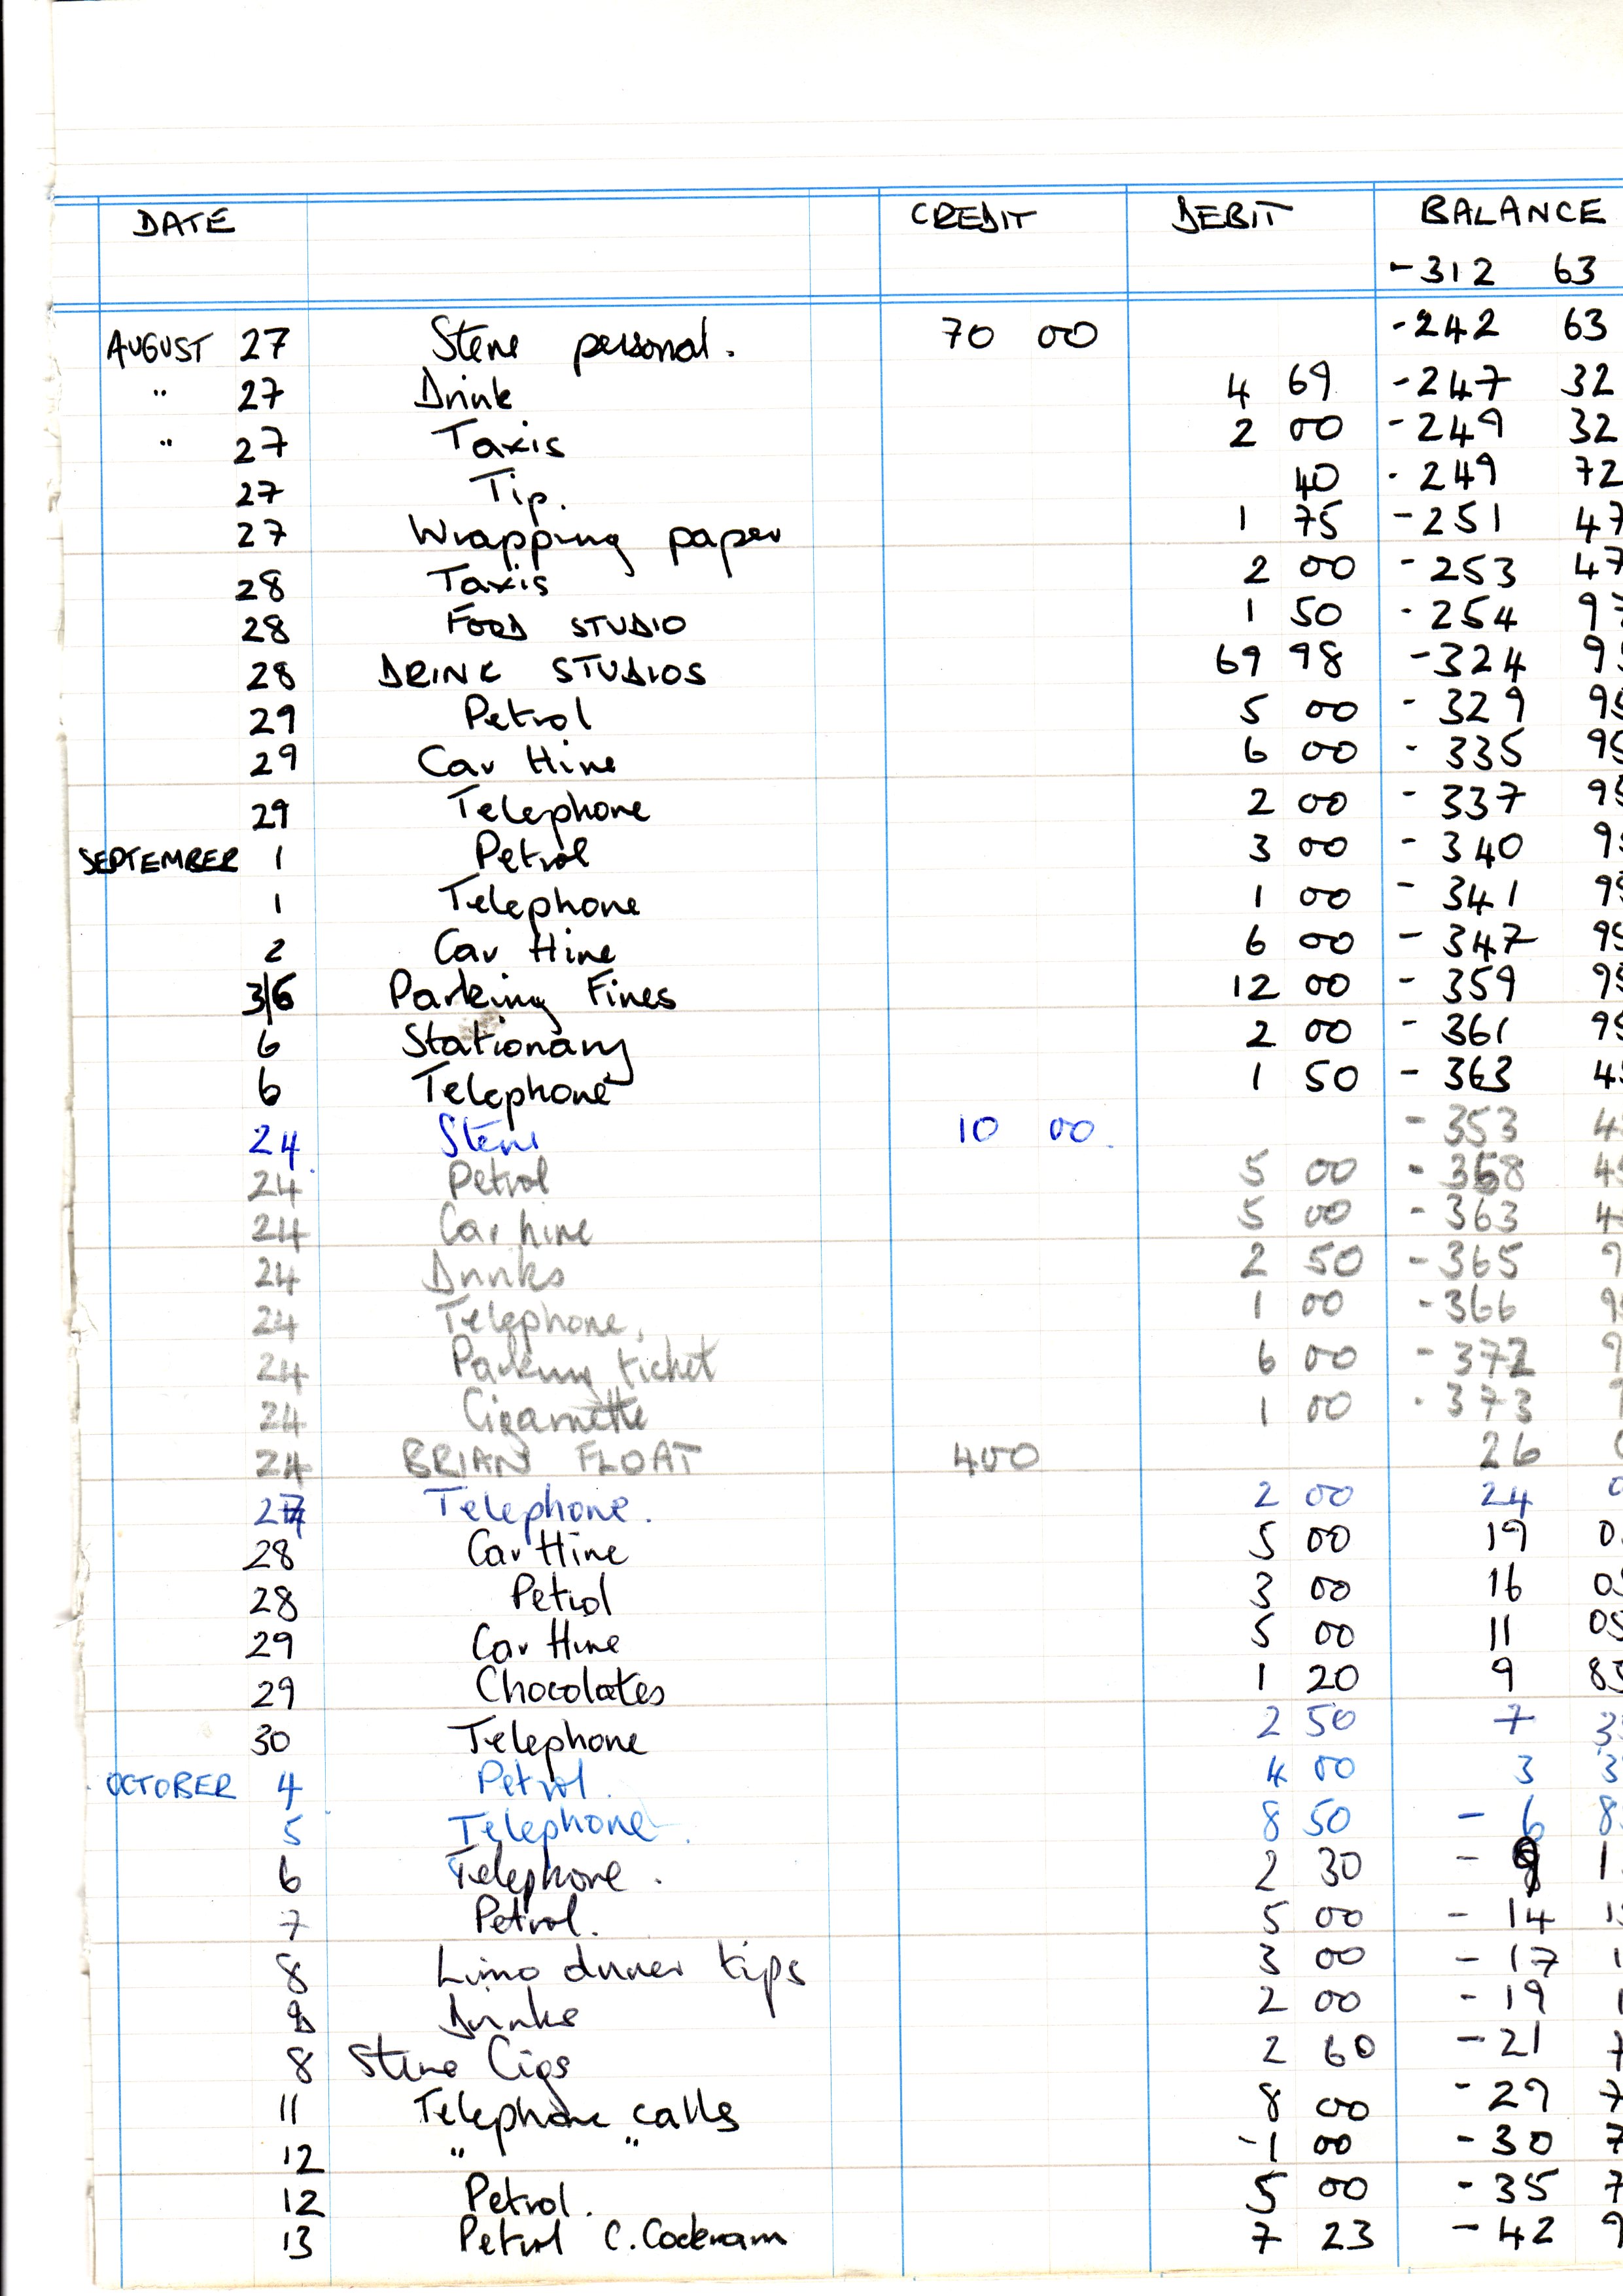 DATE CREDIT DEBIT BALANCE
-312 63
AUGUST 27 Steve personal. 70 00 -242 63
" 27 Drink 4 69 -247 32
" 27 Taxis 2 00 -249 32
27 Tip. 40 - 249 72
27 Wrapping paper 1 75 -251 47
28 Taxis 2 00 - 253 47
28 FOOD STUDIO 1 50 - 254 97
28 DRINK STUDIOS 69 98 -324 95
29 Petrol 5 00 - 329 95
29 Car Hire 6 00 - 335 95
29 Telephone 2 00 - 337 95
SEPTEMBER 1 Petrol 3 00 - 340 95
1 Telephone 1 00 - 341 95
2 Car Hire 6 00 - 347 95
3/6 Parking Fines 12 00 - 359 95
6 Stationary 2 00 - 361 95
6 Telephone 1 50 - 363 45
24 Steve 10 00. - 353 4
24 Petrol 5 00 - 358 45
24 Car hire 5 00 - 363 4
24 Drinks 2 50 - 365 9
24 Telephone. 1 00 - 366 9
24 Parking ticket 6 00 - 372 9
24 Cigarette 1 00 - 373 9
24 BRIAN FLOAT 400 26 0
27 Telephone. 2 00 24 0
28 Car Hire 5 00 19 0
28 Petrol 3 00 16 05
29 Car Hire 5 00 11 05
29 Chocolates 1 20 9 85
30 Telephone 2 50 7 3
OCTOBER 4 Petrol. 4 00 3 3
5 Telephone. 8 50 - 6 8
6 Telephone. 2 30 - 9 1
7 Petrol. 5 00 - 14 1
8 Limo driver tips 3 00 - 17 1
8 Drinks 2 00 - 19 1
8 Steve Cigs 2 60 - 21 7
11 Telephone calls 8 00 - 29 7
12 " " -1 00 - 30 7
12 Petrol. 5 00 - 35 7
13 Petrol 7 23 - 42 9